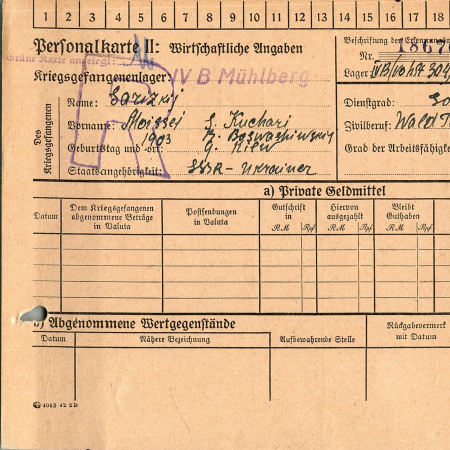 1 2 3 4 5 6 7 8 9 10 11 12 13 14 15 16 17 18
Personalkarte II: Wirtschaftliche Angaben
Grüne Karte angelegt:
Kriegsgefangenenlager: IV B Mühlberg
Beschriftung der Erkennungs
Nr. 1867
Lager: IV B
Des Kriegsgefangenen
Name: Sarizkij
Vorname: Moissej S. Kuchari
Geburtstag und -ort: 1903 G. Kiew
Staatsangehörigkeit: SSSR - Ukrainer
Dienstgrad: So
Zivilberuf: Wald
Grad der Arbeitsfähigke
a) Private Geldmittel
Datum
Dem Kriegsgefangenen abgenommene Beträge in Valuta
Postsendungen in Valuta
Gutschrift in
RM Rpf
Hiervon ausgezahlt
RM Rpf
Bleibt Guthaben
RM Rpf
b) Abgenommene Wertgegenstände
Datum
Nähere Bezeichnung
Aufbewahrende Stelle
Rückgabevermerk mit Datum
4063 42 2D